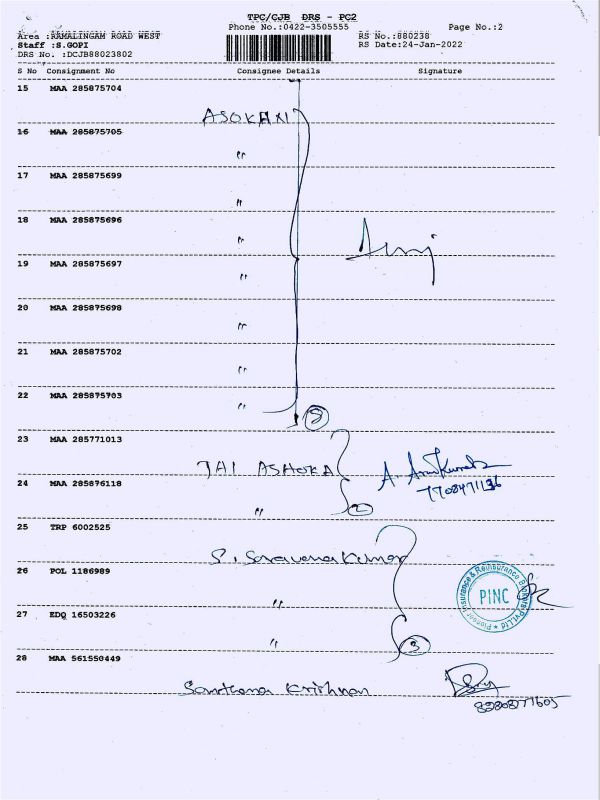 TPC/CJB DRS - PC2
Phone No.:0422-3505555 Page No.:2
Area :RAMALINGAM ROAD WEST RS No.:880238
Staff :S.GOPI RS Date:24-Jan-2022
DRS No. :DCJB88023802
S No Consignment No Consignee Details Signature
15 MAA 285875704
ASOKAN
16 MAA 285875705
"
17 MAA 285875699
"
18 MAA 285875696
"
19 MAA 285875697
"
20 MAA 285875698
"
21 MAA 285875702
"
22 MAA 285875703
"
8
23 MAA 285771013
JAI ASHOKA A. Arunkumar
24 MAA 285876118 7708471136
" 2
25 TRP 6002525
S. Saravana Kumar
26 POL 1186989
" PINC
Pioneer Insurance & Reinsurance Brokers Pvt Ltd
27 EDQ 16503226
" 3
28 MAA 561550449
Santhana Krishnan